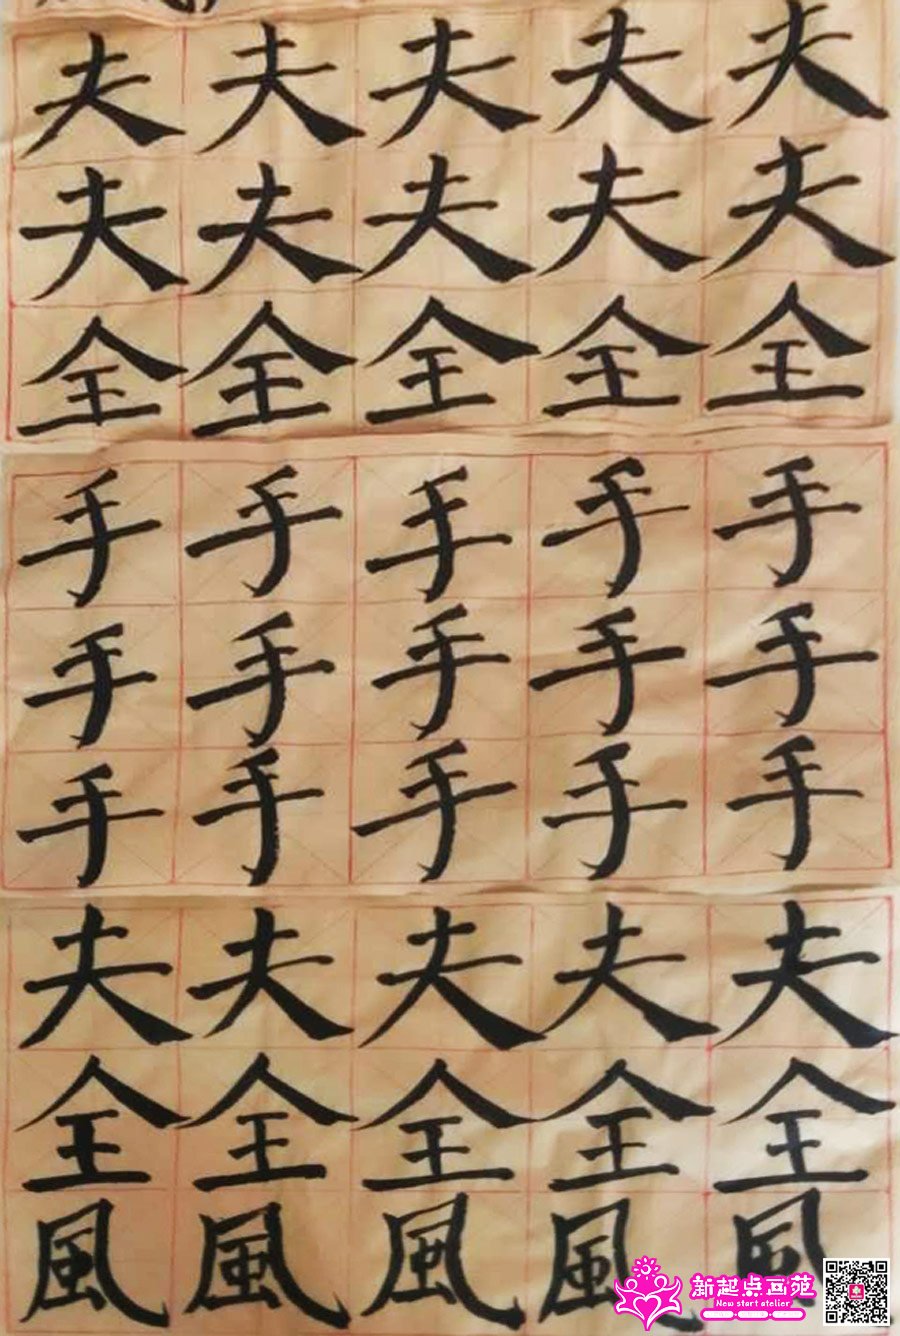 夫夫夫夫夫
夫夫夫夫夫
全全全全全
手手手手手
手手手手手
手手手手手
夫夫夫夫夫
全全全全全
風風風風風
新起点画苑
New start atelier